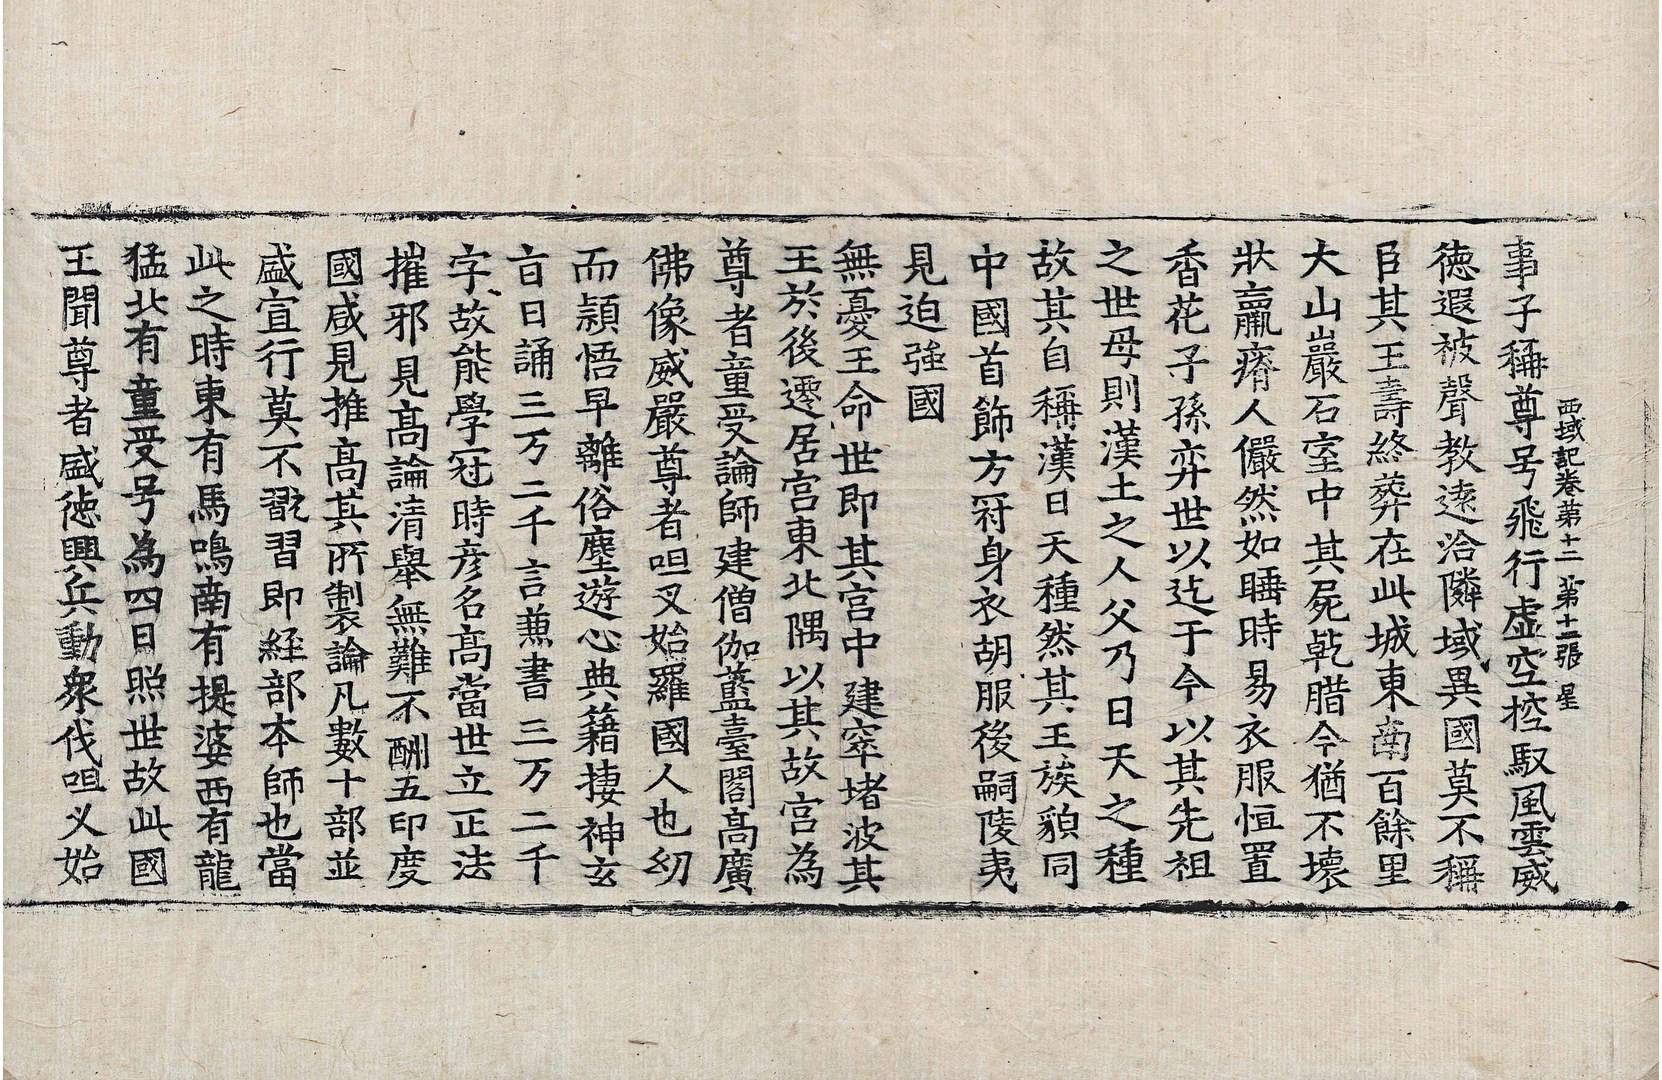 西域記卷第十二 第十二張 星
事子稱尊号飛行虛空控馭風雲威
徳遐被聲教遠洽隣域異國莫不稱
臣其王壽終葬在此城東南百餘里
大山巖石室中其屍乹腊今猶不壞
狀羸瘠人儼然如睡時易衣服恒置
香花子孫弈世以迄于今以其先祖
之世母則漢土之人父乃日天之種
故其自稱漢日天種然其王族貌同
中國首飾方冠身衣胡服後嗣陵夷
見迫強國
無憂王命世即其宮中建窣堵波其
王於後遷居宮東北隅以其故宮為
尊者童受論師建僧伽藍臺閣髙廣
佛像威嚴尊者呾叉始羅國人也幼
而穎悟早離俗塵遊心典籍棲神玄
旨日誦三万二千言兼書三万二千
字故能學冠時彦名髙當世立正法
摧邪見髙論清舉無難不酬五印度
國咸見推髙其所製論凡數十部並
盛宣行莫不翫習即経部本師也當
此之時東有馬鳴南有提婆西有龍
猛北有童受号為四日照世故此國
王聞尊者盛徳興兵動衆伐呾叉始